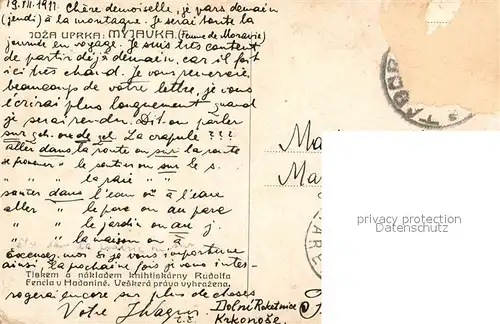 19.VII.1911. Chère demoiselle, je vars demain
(jeudi) à la montagne. Je serai toute la
JOŽA UPRKA: MYJAVKA. (Femme de Moravie)
journée en voyage. Je suis très content
de partir déjà demain, car il fait
ici très chaud. Je vous remercie
beaucoup de votre lettre, je vous
écrirai plus longuement quand
je serai rendu. Dit on parler
sur qch. ou de qch. La crapule ???
aller dans la route ou sur la route
se promener " le sentier ou sur le s.
" la raie " "
sauter dans l'eau ou à l'eau
aller " le parc ou au parc
" " le jardin ou au j.
" " la maison ou à
Excusez-moi si je vous importune
ainsi, la prochaine fois je vous inter-
Tiskem a nákladem knihtiskárny Rudolfa
Fencla v Hodoníně. Veškerá práva vyhražena.
rogerai encore sur plus de choses
Votre JWagner
Dolní Rokytnice
Krkonoše.
Ma
Ma
TABOR
privater Ansender
Datenschutz